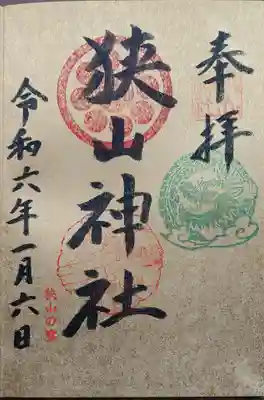 奉拝
狭山神社
令和六年一月六日